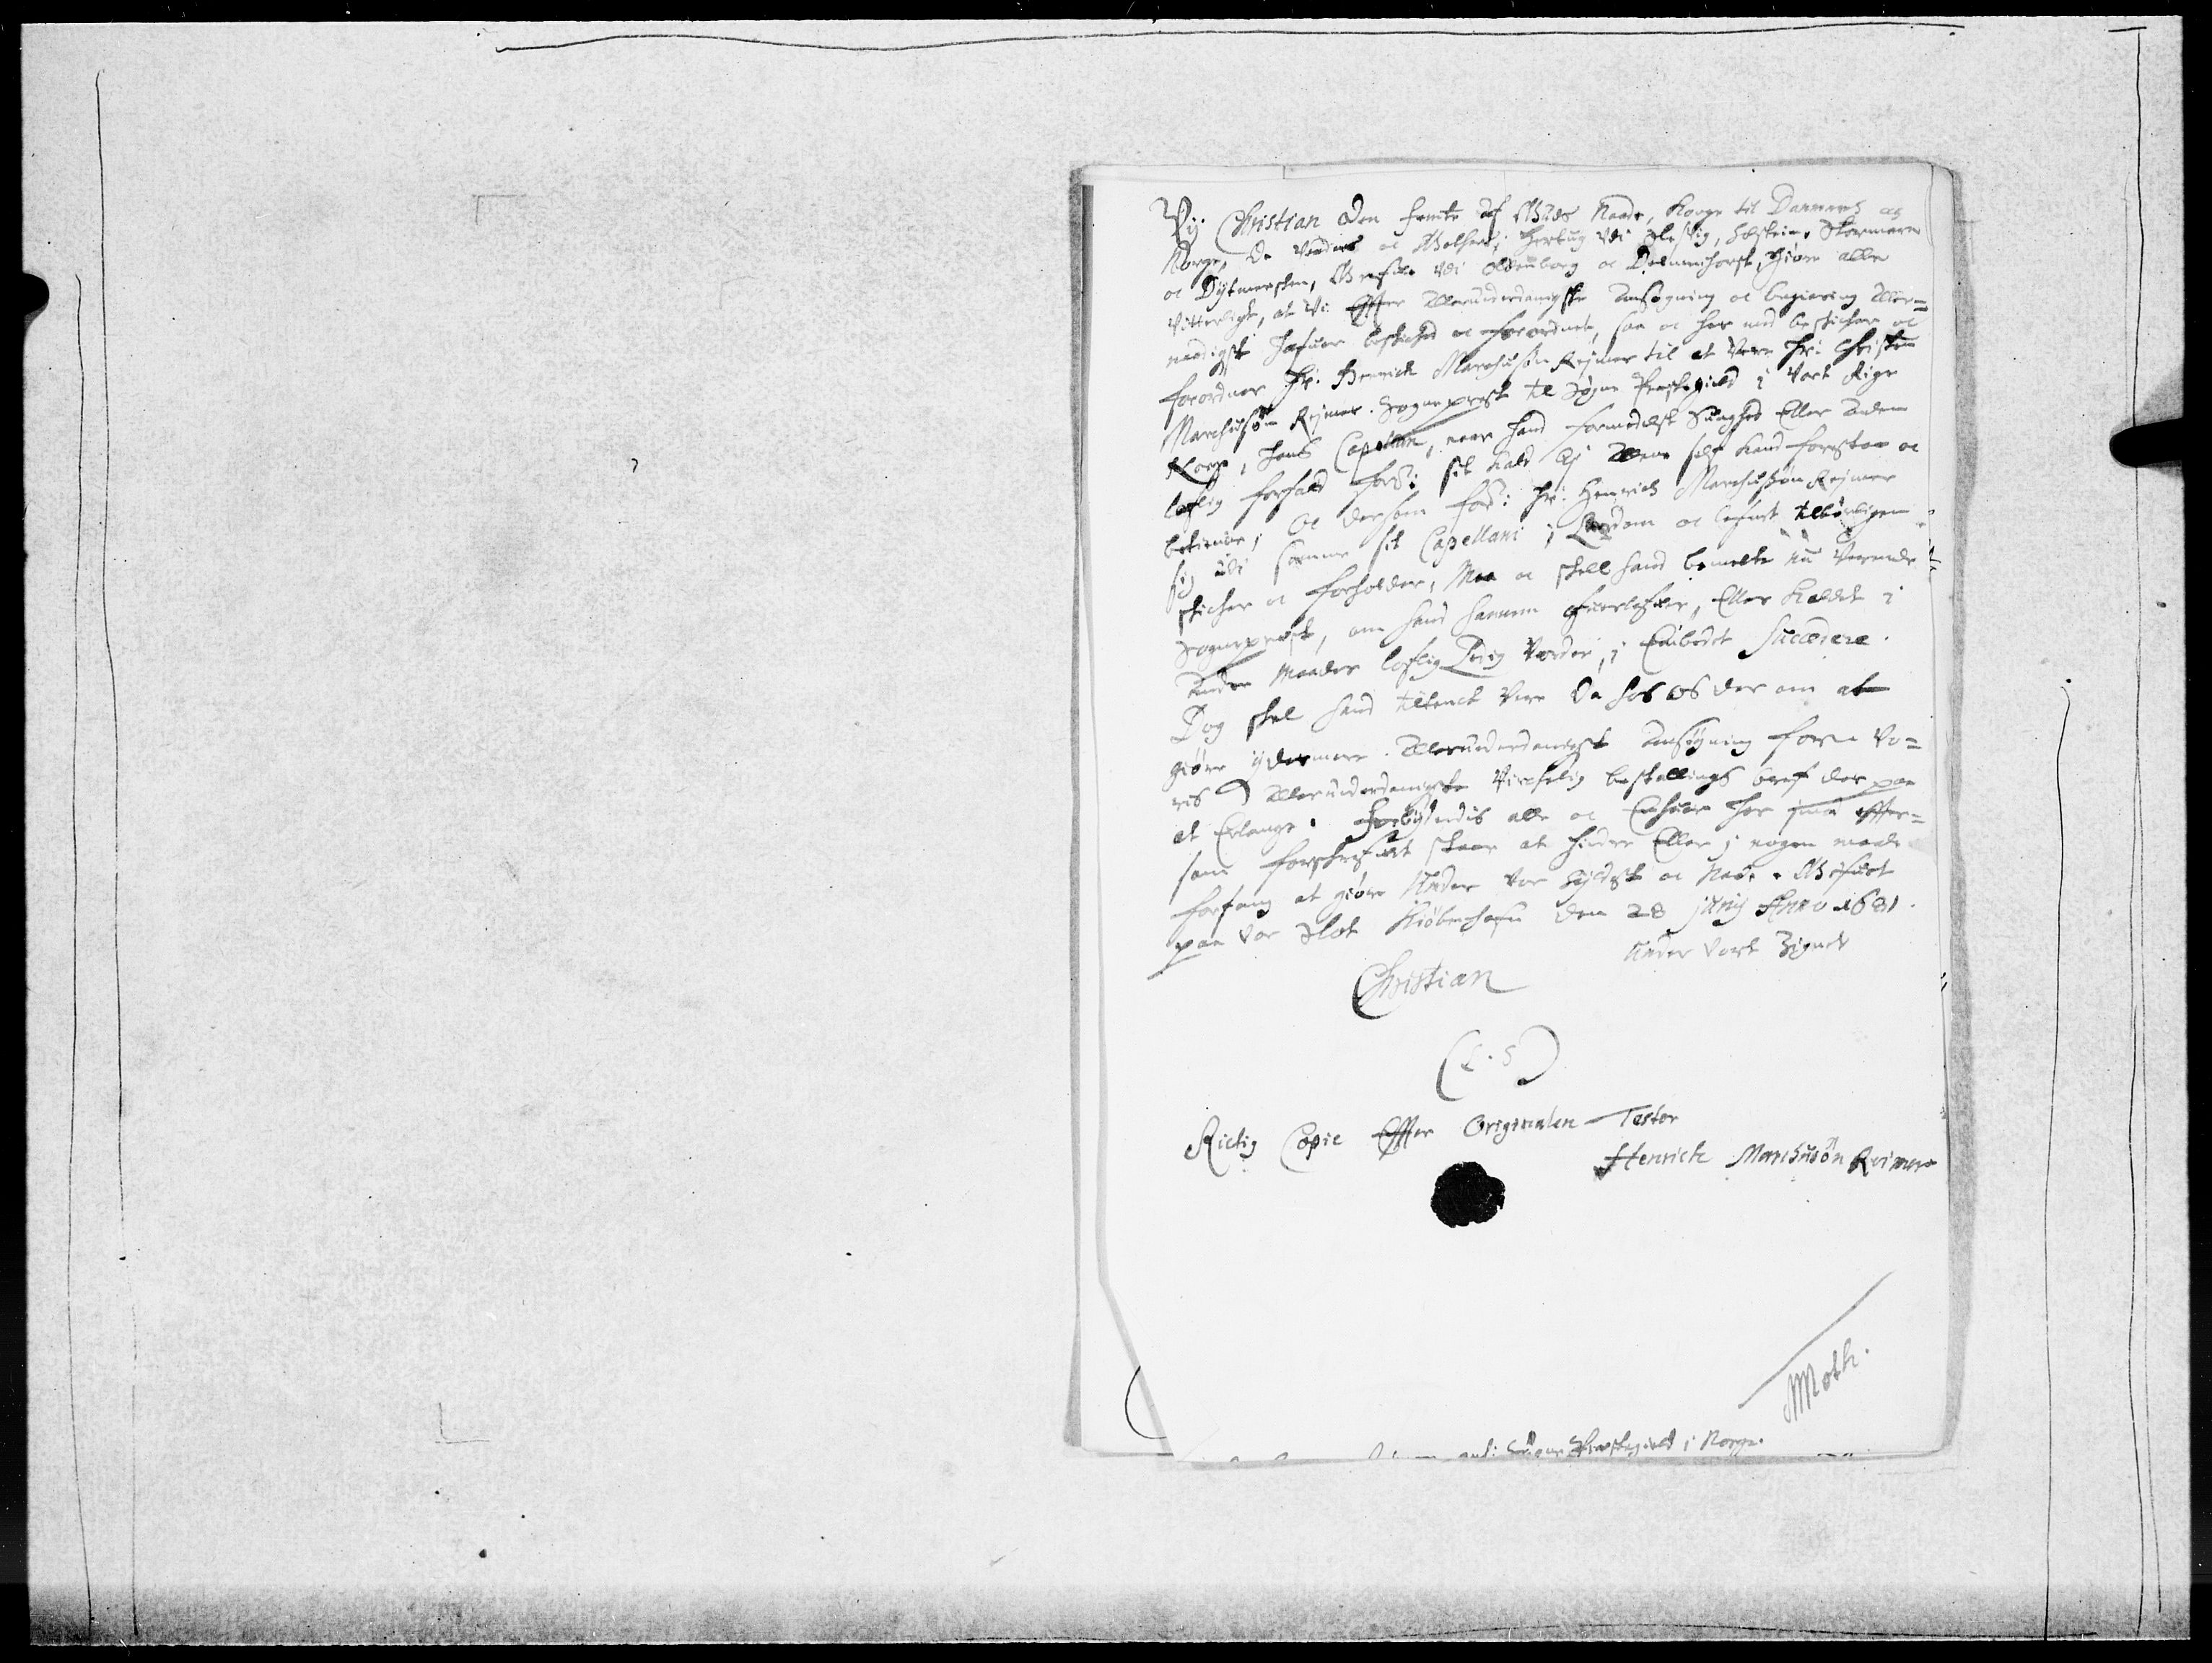 Vij Christian den femte af Guds Naade, Konge til Danmarch og
Norge, De Venders oc Gothers; Hertug Udi Slesvig, Holsten, Stormarn
oc Dytmersken, Grefve Udi Oldenborg oc Delmenhorst, Giøre alle
Vitterligt, at Vi Effter Allerunderdanigste Ansøgning oc begiering Aller=
naadigst hafver beskicked oc forordnet, saa oc her med beskicher oc
forordner Hr. Henrich Marchusøn Reimer til at Vere Hr. Christen
Marchusøn Reimer Sogneprest til Sogne Prestegield i Vort Rige
Norge, hans Capellan, naar hand formedelst Svaghed Eller Anden
loflig forfald forschr: sit Kald Ej Alene self kand forestaa oc
betienne; Oc dersom forschr: Hr: Henrich Marchusøn Reimer
sig udi samme sit Capellani i Lærdom oc lefnet tilbørligen
skicher oc forholder, Maa oc skall hand bemelte nu Værende
Sogneprest, om hand hannem ofverlefver, Eller Kaldet i
Andre Maader loflig Ledig Vorder, i Embedet Succedere.
Dog skal hand tiltenckt Vere da hos Os der om at
giøre ydermere Allerunderdanigst Ansøgning for Vo=
ris Allerunderdanigste Virchelig bestallings bref der paa
at Erlange. Forbydendis alle oc Enhver her imod Effter=
som forschrefvet staar at hindre Eller i nogen maade
forfang at giøre Under Vor Hyldest oc Naade. Gifvet
paa Vor Slot Kiøbenhafn den 28 junij Anno 1681.
Under Vort Zignet
Christian
(L.S)
Rictig Copie Effter Originalen Tester
Henrich Marchusøn Reimer
Moth.
Sogne Prestegield i Norge.